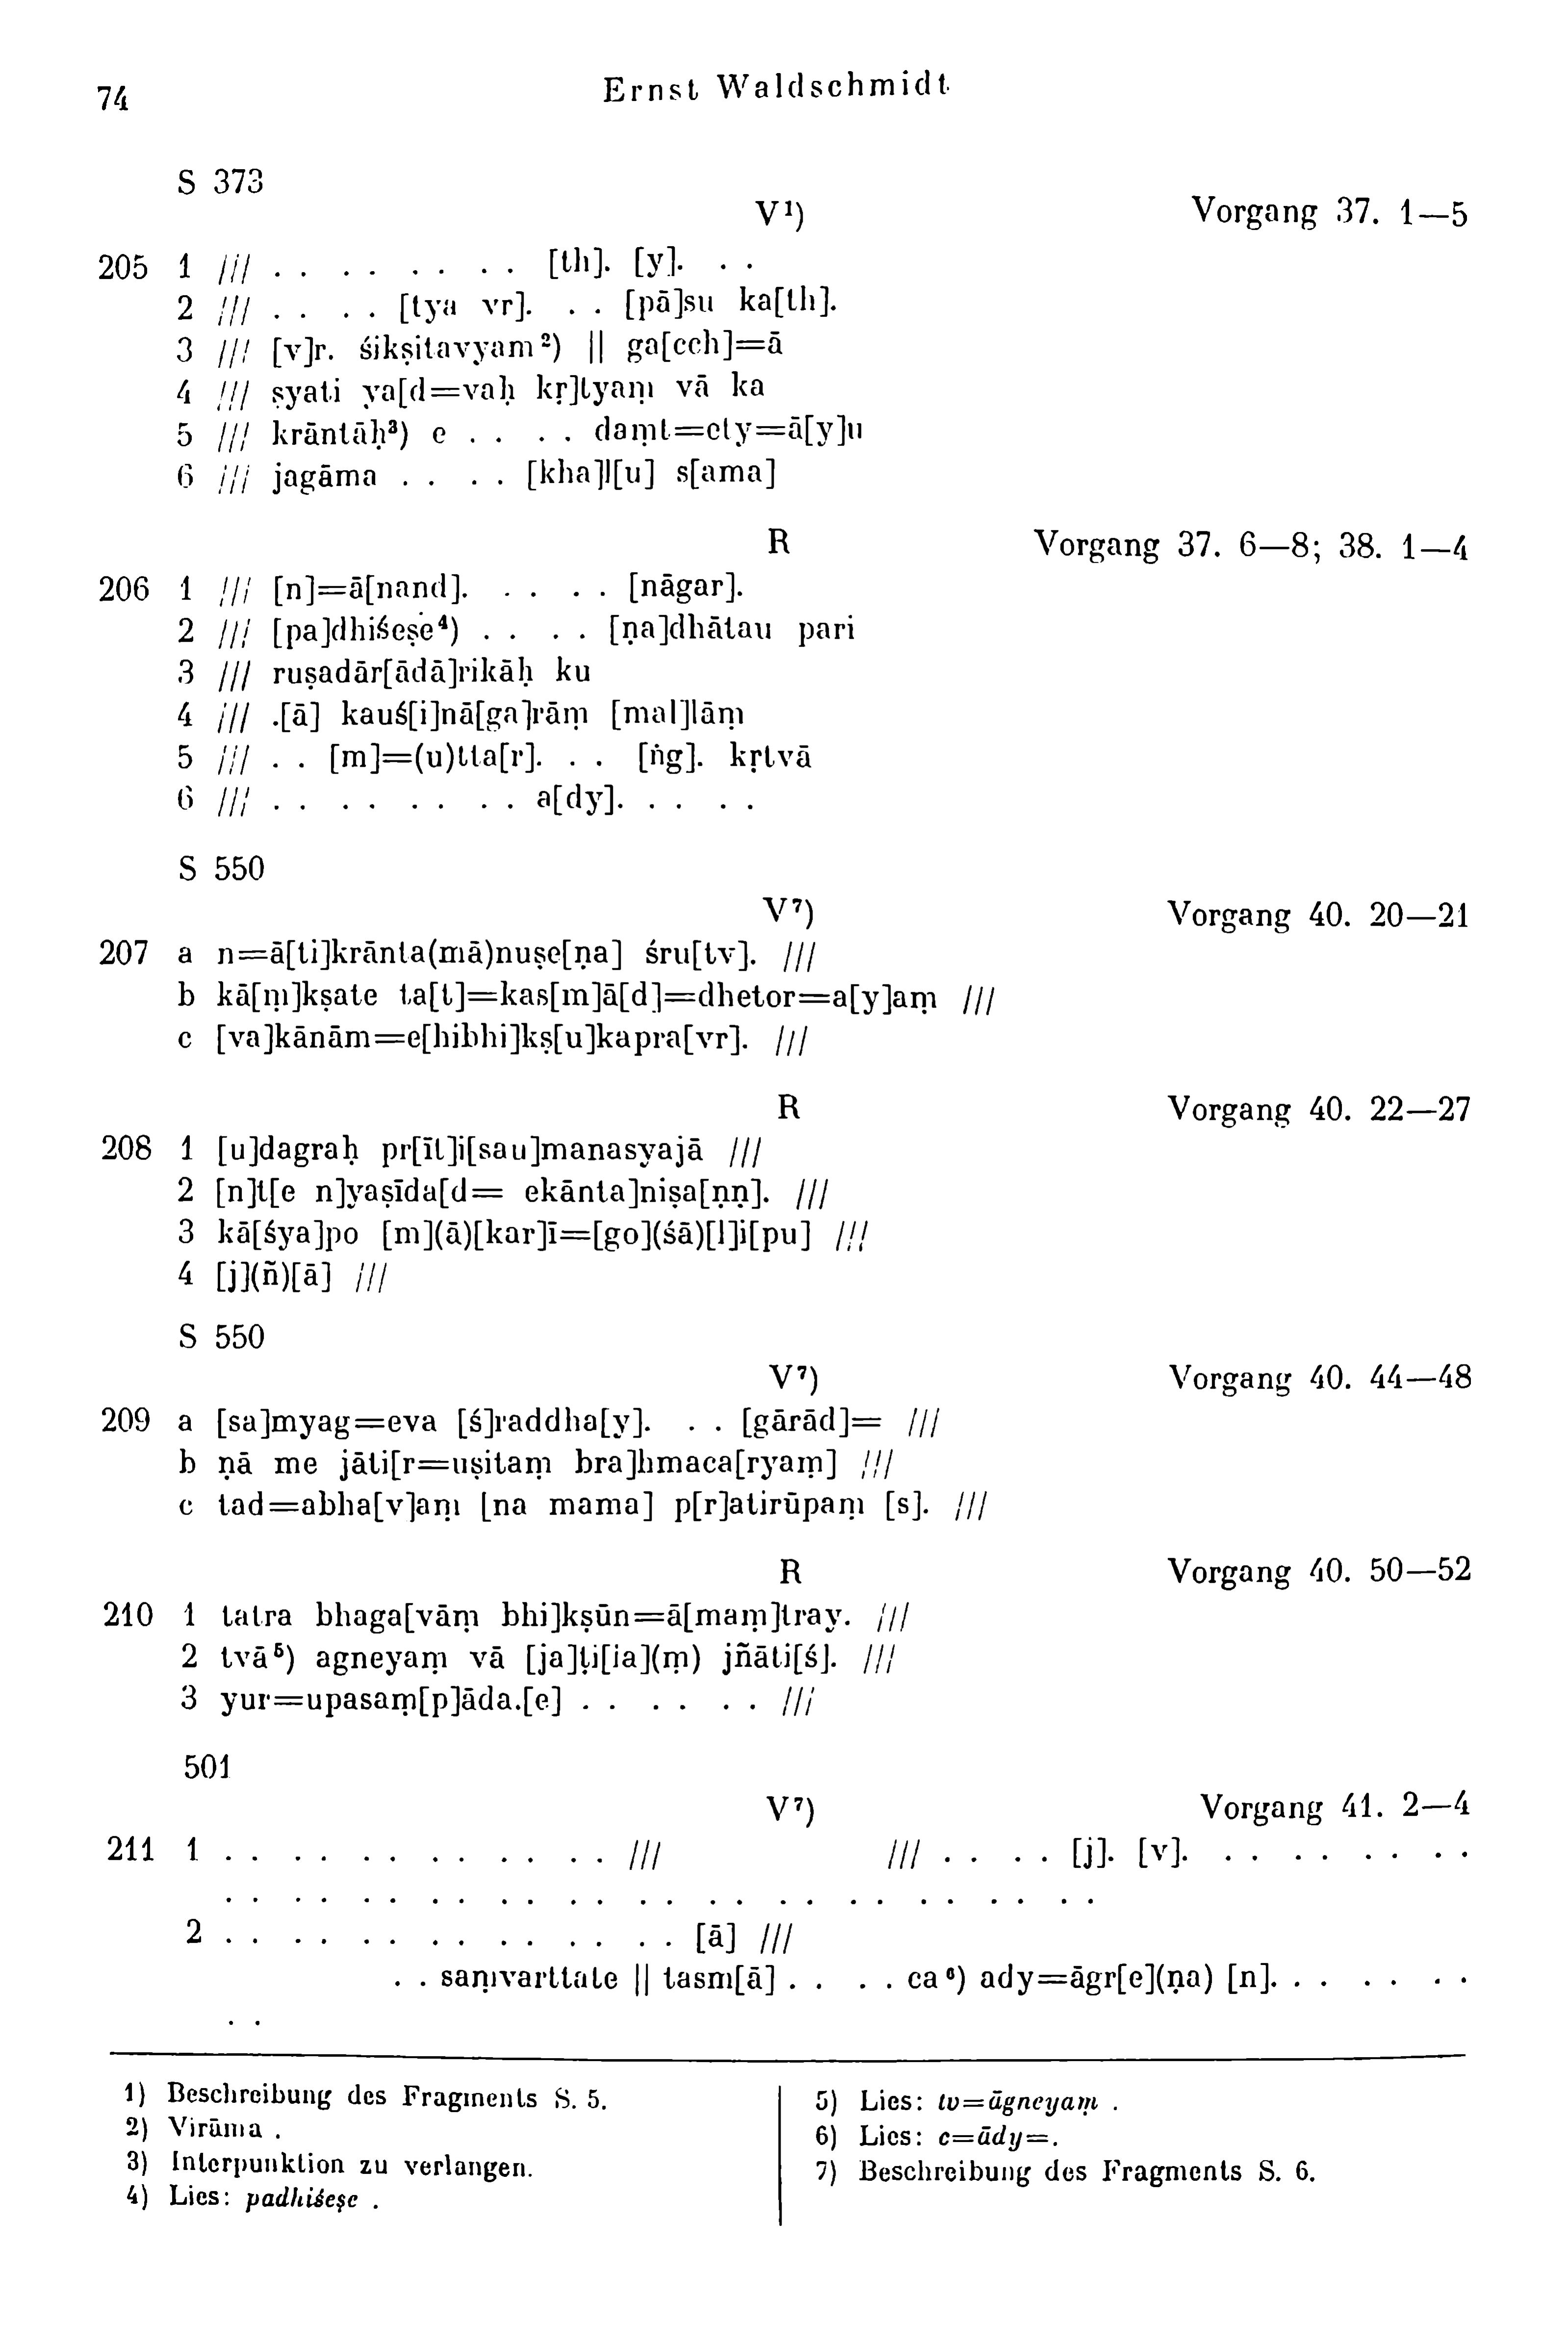 74 Ernst Waldschmidt
S 373
V¹) Vorgang 37. 1—5
205 1 /// . . . . . . . . [th]. [y]. . .
2 /// . . . . [tya vr]. . . [pā]su ka[th].
3 /// [v]r. śikṣitavyam²) || ga[cch]=ā
4 /// ṣyati ya[d=vaḥ kṛ]tyaṃ vā ka
5 /// krāntāḥ³) e . . . . daṃt=cty=ā[y]u
6 /// jagāma . . . . [kha]l[u] s[ama]
R Vorgang 37. 6—8; 38. 1—4
206 1 /// [n]=ā[nand]. . . . . [nāgar].
2 /// [pa]dhiśeṣe⁴) . . . . [ṇa]dhātau pari
3 /// ruṣadār[ādā]rikāḥ ku
4 /// .[ā] kauś[i]nā[ga]rāṃ [mal]lāṃ
5 /// . . [m]=(u)tta[r]. . . [ṅg]. kṛtvā
6 /// . . . . . . . . a[dy]. . . . .
S 550
V⁷) Vorgang 40. 20—21
207 a n=ā[ti]krānta(mā)nuṣe[ṇa] śru[tv]. ///
b kā[ṃ]kṣate ta[t]=kas[m]ā[d]=dhetor=a[y]aṃ ///
c [va]kānām=e[hibhi]kṣ[u]kapra[vr]. ///
R Vorgang 40. 22—27
208 1 [u]dagraḥ pr[īt]i[sau]manasyajā ///
2 [n]t[e n]yaṣīda[d= ekānta]niṣa[ṇṇ]. ///
3 kā[śya]po [m](ā)[kar]ī=[go](śā)[l]i[pu] ///
4 [j](ñ)[ā] ///
S 550
V⁷) Vorgang 40. 44—48
209 a [sa]myag=eva [ś]raddha[y]. . . [gārād]= ///
b ṇā me jāti[r=uṣitaṃ bra]hmaca[ryaṃ] ///
c tad=abha[v]aṃ [na mama] p[r]atirūpaṃ [s]. ///
R Vorgang 40. 50—52
210 1 tatra bhaga[vāṃ bhi]kṣūn=ā[maṃ]tray. ///
2 tvā⁵) agneyaṃ vā [ja]ṭi[la](ṃ) jñāti[ś]. ///
3 yur=upasaṃ[p]āda.[e] . . . . . . ///
501
V⁷) Vorgang 41. 2—4
211 1 . . . . . . . . . . . . /// /// . . . . [j]. [v]. . . . . . . . .
. . . . . . . . . . . . . . . . . . . . . . . . . .
2 . . . . . . . . . . . . . . [ā] ///
. . saṃvarttate || tasm[ā] . . . . ca⁶) ady=āgr[e](ṇa) [n]. . . . . . .
. .
1) Beschreibung des Fragments S. 5.
2) Virāma .
3) Interpunktion zu verlangen.
4) Lies: padhiśeṣe .
5) Lies: tv=āgneyaṃ .
6) Lies: c=ādy=.
7) Beschreibung des Fragments S. 6.